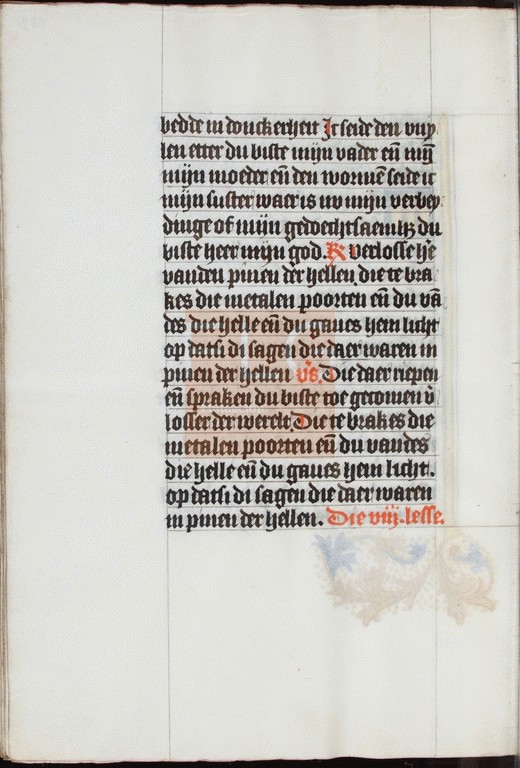 bedde in donckerheit Ic seide den vuy
len etter du biste mijn vader eñ mȳ
mijn moeder eñ den wormē seide ic
mijn suster waer is nv mijn verbey
dinge of mijn gedochtsaemhz du
biste heer mijn god. R verlosse hē
vanden pinen der hellen die te bra
kes die metalen poorten eñ du vā
des die helle eñ du gaues hem licht
op datsi di sagen die daer waren in
pinen der hellen vs. Die daer riepen
eñ spraken du biste toe gecomen v̄
losser der werelt. Die te brakes die
metalen poorten eñ du vandes
die helle eñ du gaues hem licht.
op datsi di sagen die daer waren
in pinen der hellen. Die viij. lesse.